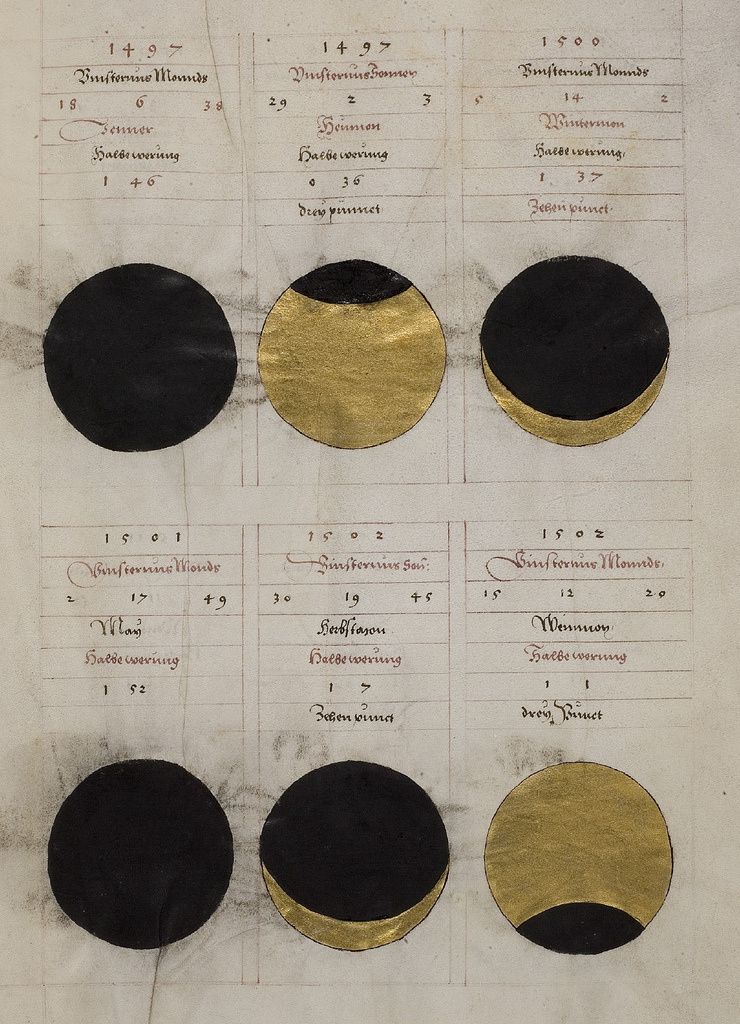 1497
Vinsternus Monnds
18 6 38
Jenner
Halbe werung
1 46
1497
Vinsternus Sonnen
29 2 3
Heumon
Halbe werung
0 36
drey punnct
1500
Vinsternus Monnds
5 14 2
Wintermon
Halbe werung
1 37
Zehen punct
1501
Vinsternus Monds
2 17 49
May
Halbe werung
1 52
1502
Vinsternus Son:
30 19 45
Herbstmon
Halbe werung
1 7
Zehen punct
1502
Vinsternus Monnds
15 12 20
Weinmon
Halbe werung
1 1
drey Punct